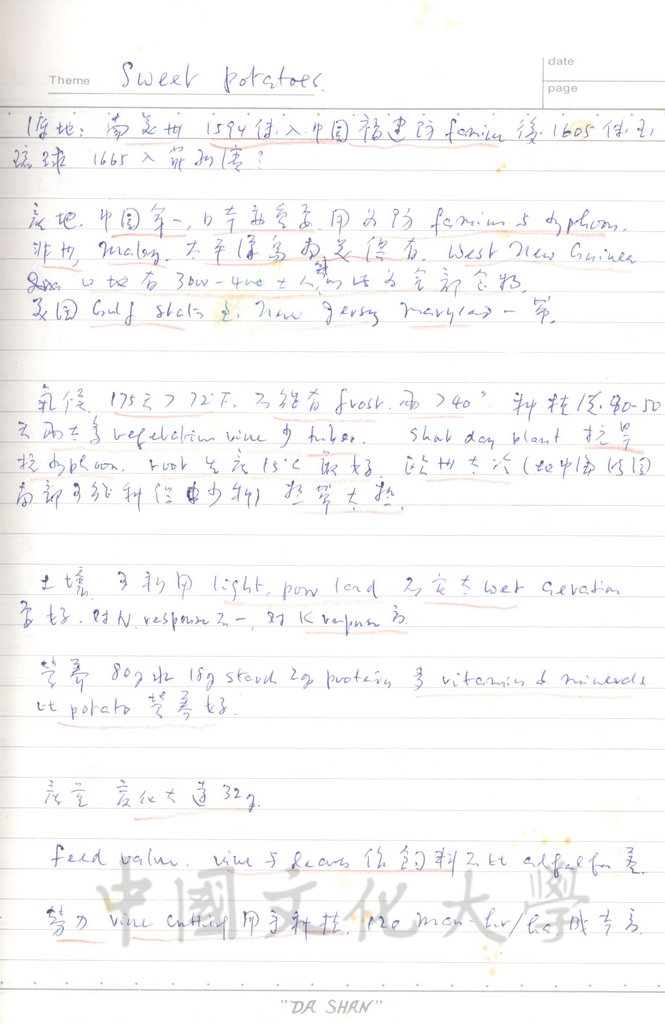 Theme Sweet potatoes
date
page
原地: 南美州 1594 傳入中国福建防 famine 後. 1605 傳至
琉球 1665 入
產地. 中国第一, 日本 用為防 famine 与 typhoon.
非州, Malay. 太平洋島 南美 West New Guinea
山地有 3000-400 人 为全部食物.
美国 Gulf states 至 New Jersey Maryland 一帶.
氣候. 175天 > 72°F. 不能有 frost. 雨 > 40" 种植後. 40-50
天雨太多 vegetative vine 少 tuber. Short day plant 抗旱
抗 typhoon. root 生長 15°C 最好. 欧州太冷 (地中海
南部可能种 但少种) 热帶太热.
土壤. 可利用 light, poor land 不宜太 wet aeration
要好. 对 N. response 不一, 对 K response 高.
营养 80g水 18g starch 2g protein 多 vitamins & minerals
比 potato 营养好.
產量 变化大 達 32
feed value. vine 与 leaves 飼料不比 alfalfa 差.
勞力 vine cutting 用手种植. 120 man-hr/ha 成本高
中國文化大學
"DA SHAN"